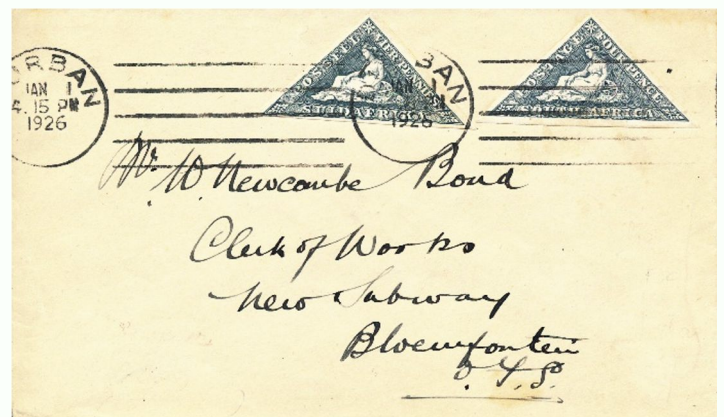 DURBAN
JAN 1
4.15 PM
1926
POSSEEL VIER PENNIE
SUID AFRIKA
BAN
JAN 1
1926
POSTAGE FOUR PENCE
SOUTH AFRICA
Mr. W Newcombe Bond
Clerk of Works
New Subway
Bloemfontein
O.F.S.